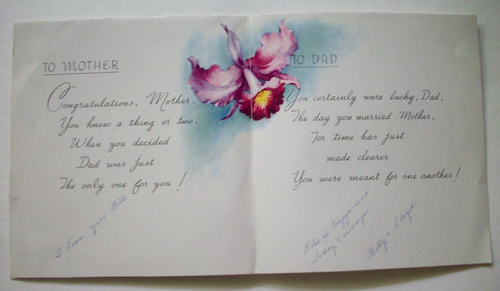 TO MOTHER
Congratulations, Mother,
You knew a thing or two
When you decided
Dad was just
The only one for you!
I love you
TO DAD
You certainly were lucky, Dad,
The day you married Mother,
For time has just
made clearer
You were meant for one another!
Lots of Happiness
Today & always
Betty & Lloyd